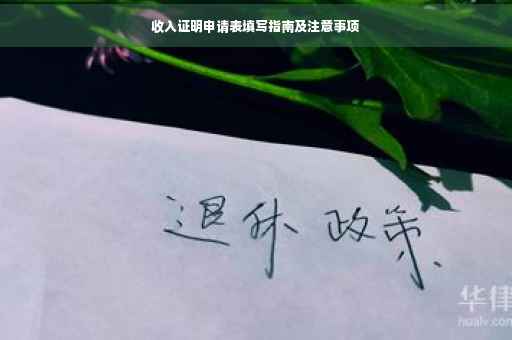 收入证明申请表填写指南及注意事项
退休 政策
华律
hualv.com